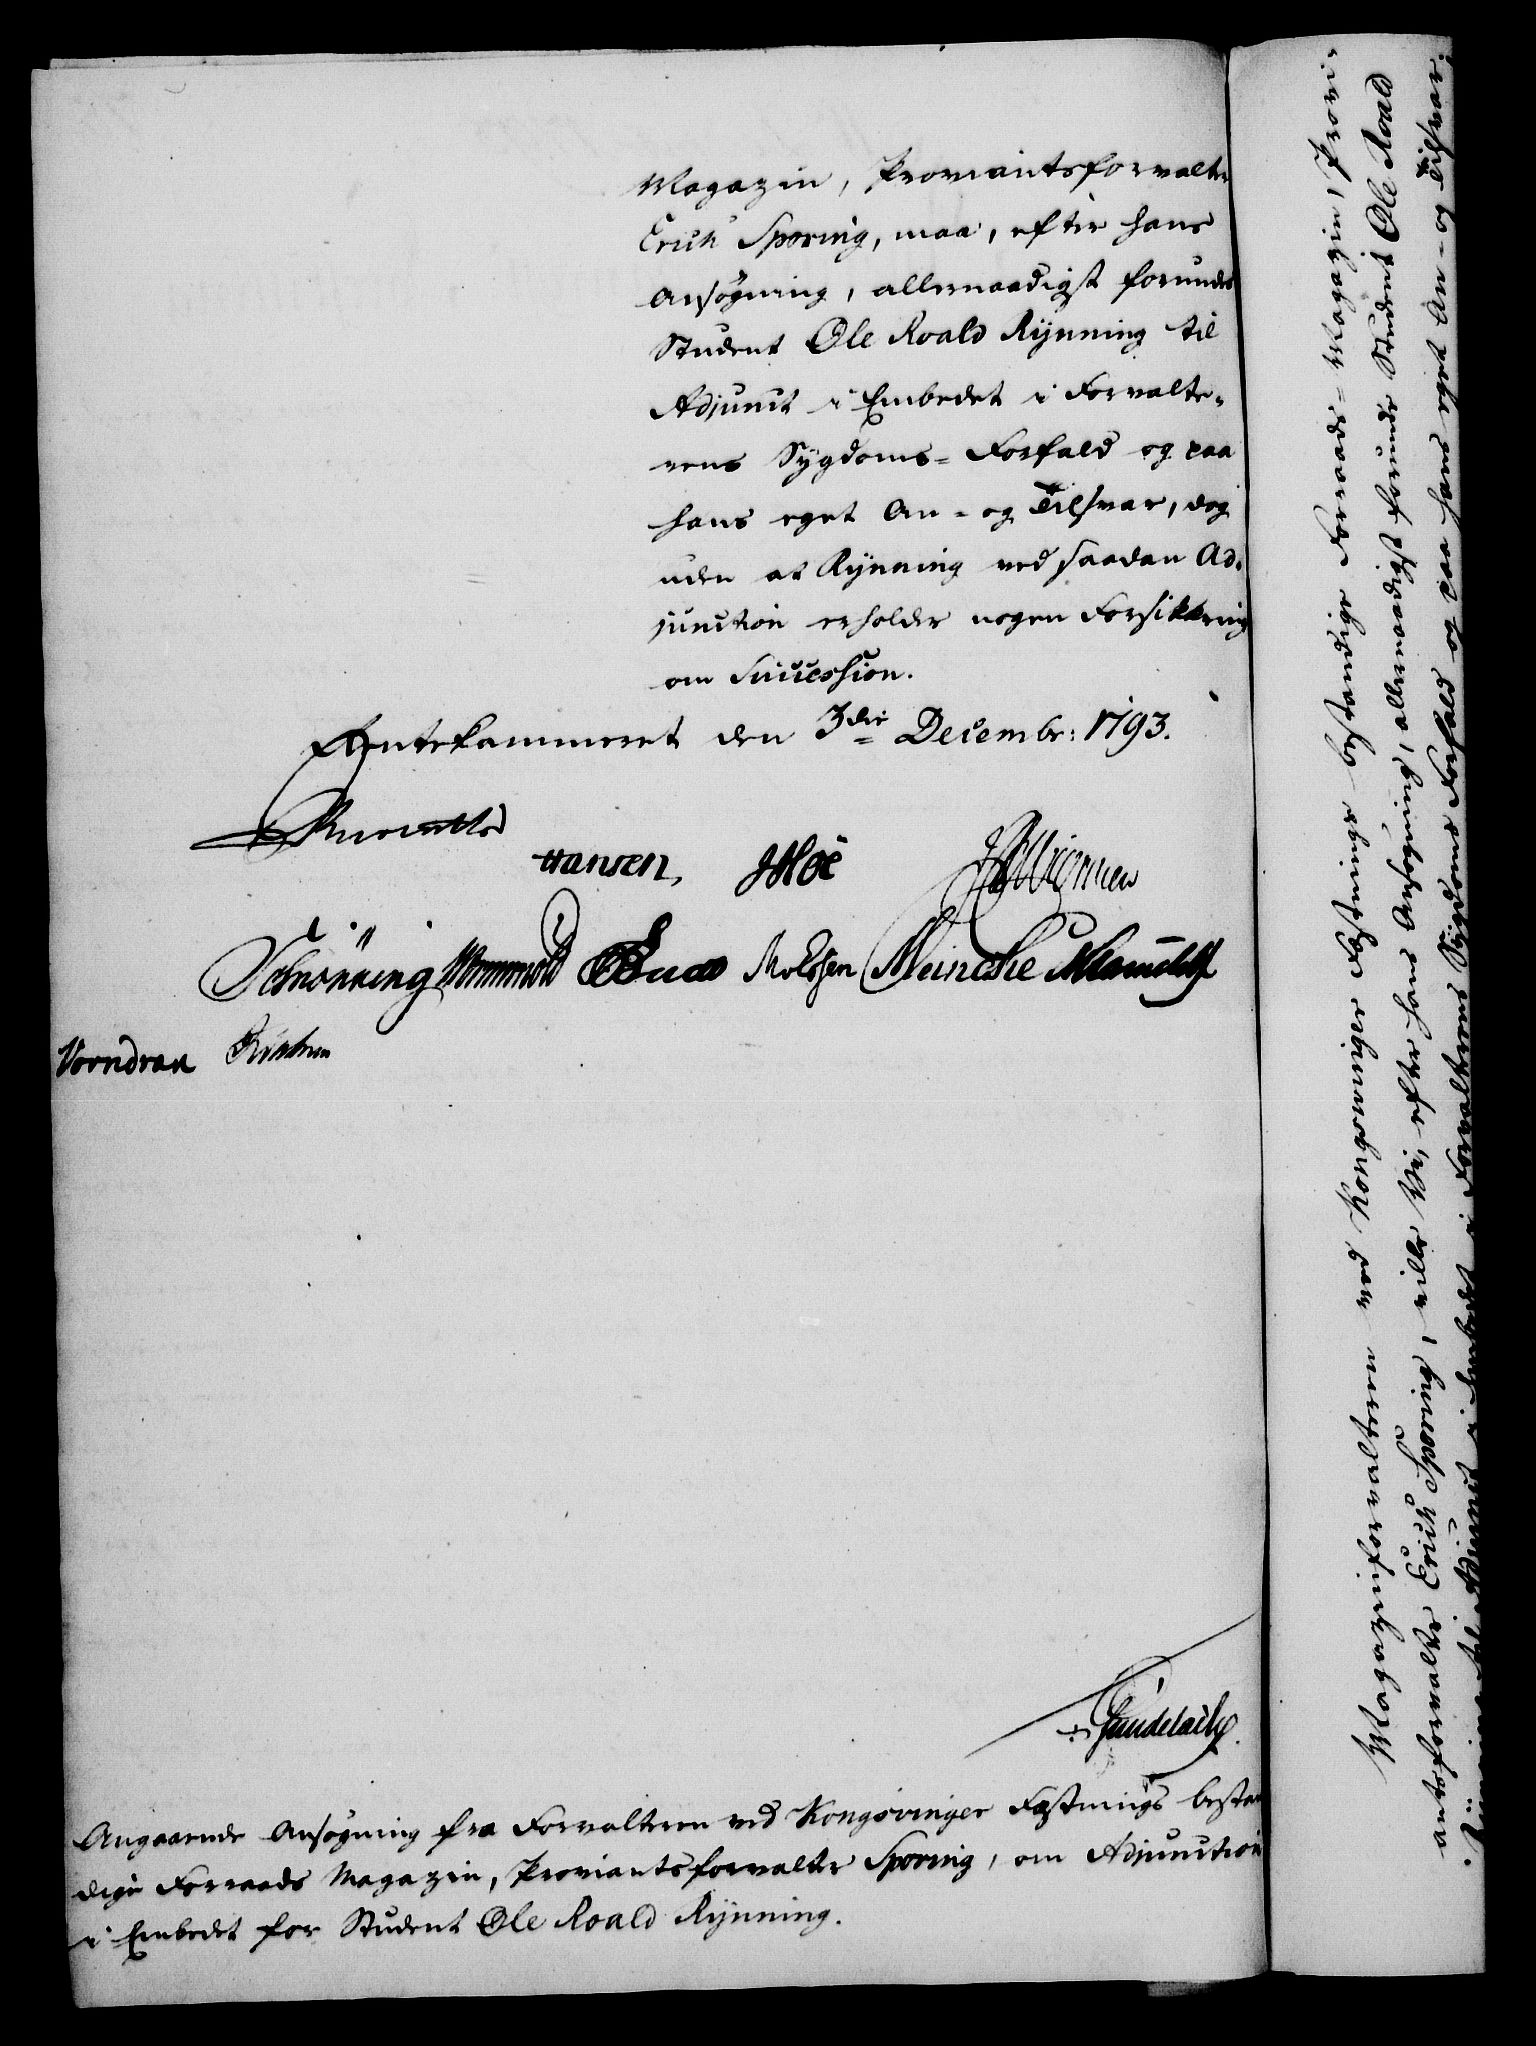 Magazin, Proviantsforvalter
Erich Sporing, maa, efter hans
Ansøgning, allernaadigst forundes
Student Ole Roald Rynning til
Adjunct i Embedet i Forvalte-
rens Sygdoms- Forfald og paa
hans eget An- og Tilsvar, dog
uden at Rynning ved saadan Ad-
junction erholder nogen Forsikkring
om Succession.
Rentekammeret den 3die Decembr: 1793.
Hansen, JMoe
Schiønning Meincke
Vorndran
Gundelach.
Angaaende Ansøgning fra Forvalteren ved Kongsvinger Fæstnings bestan
dige Forraads Magazin, Proviantsforvalter Sporing, om Adjunction
i Embedet for Student Ole Roald Rynning.
Magazinforvalteren ved Kongsvinger Fæstnings bestandige Forraads-Magazin, Provi-
antsforvalter Erich Sporing, ville Vi, efter hans Ansøgning, allernaadigst forunde Student Ole Roald
Rynning til Adjunct i Embedet i Forvalterens Sygdoms Forfald og paa hans eget An- og Tilsvar;